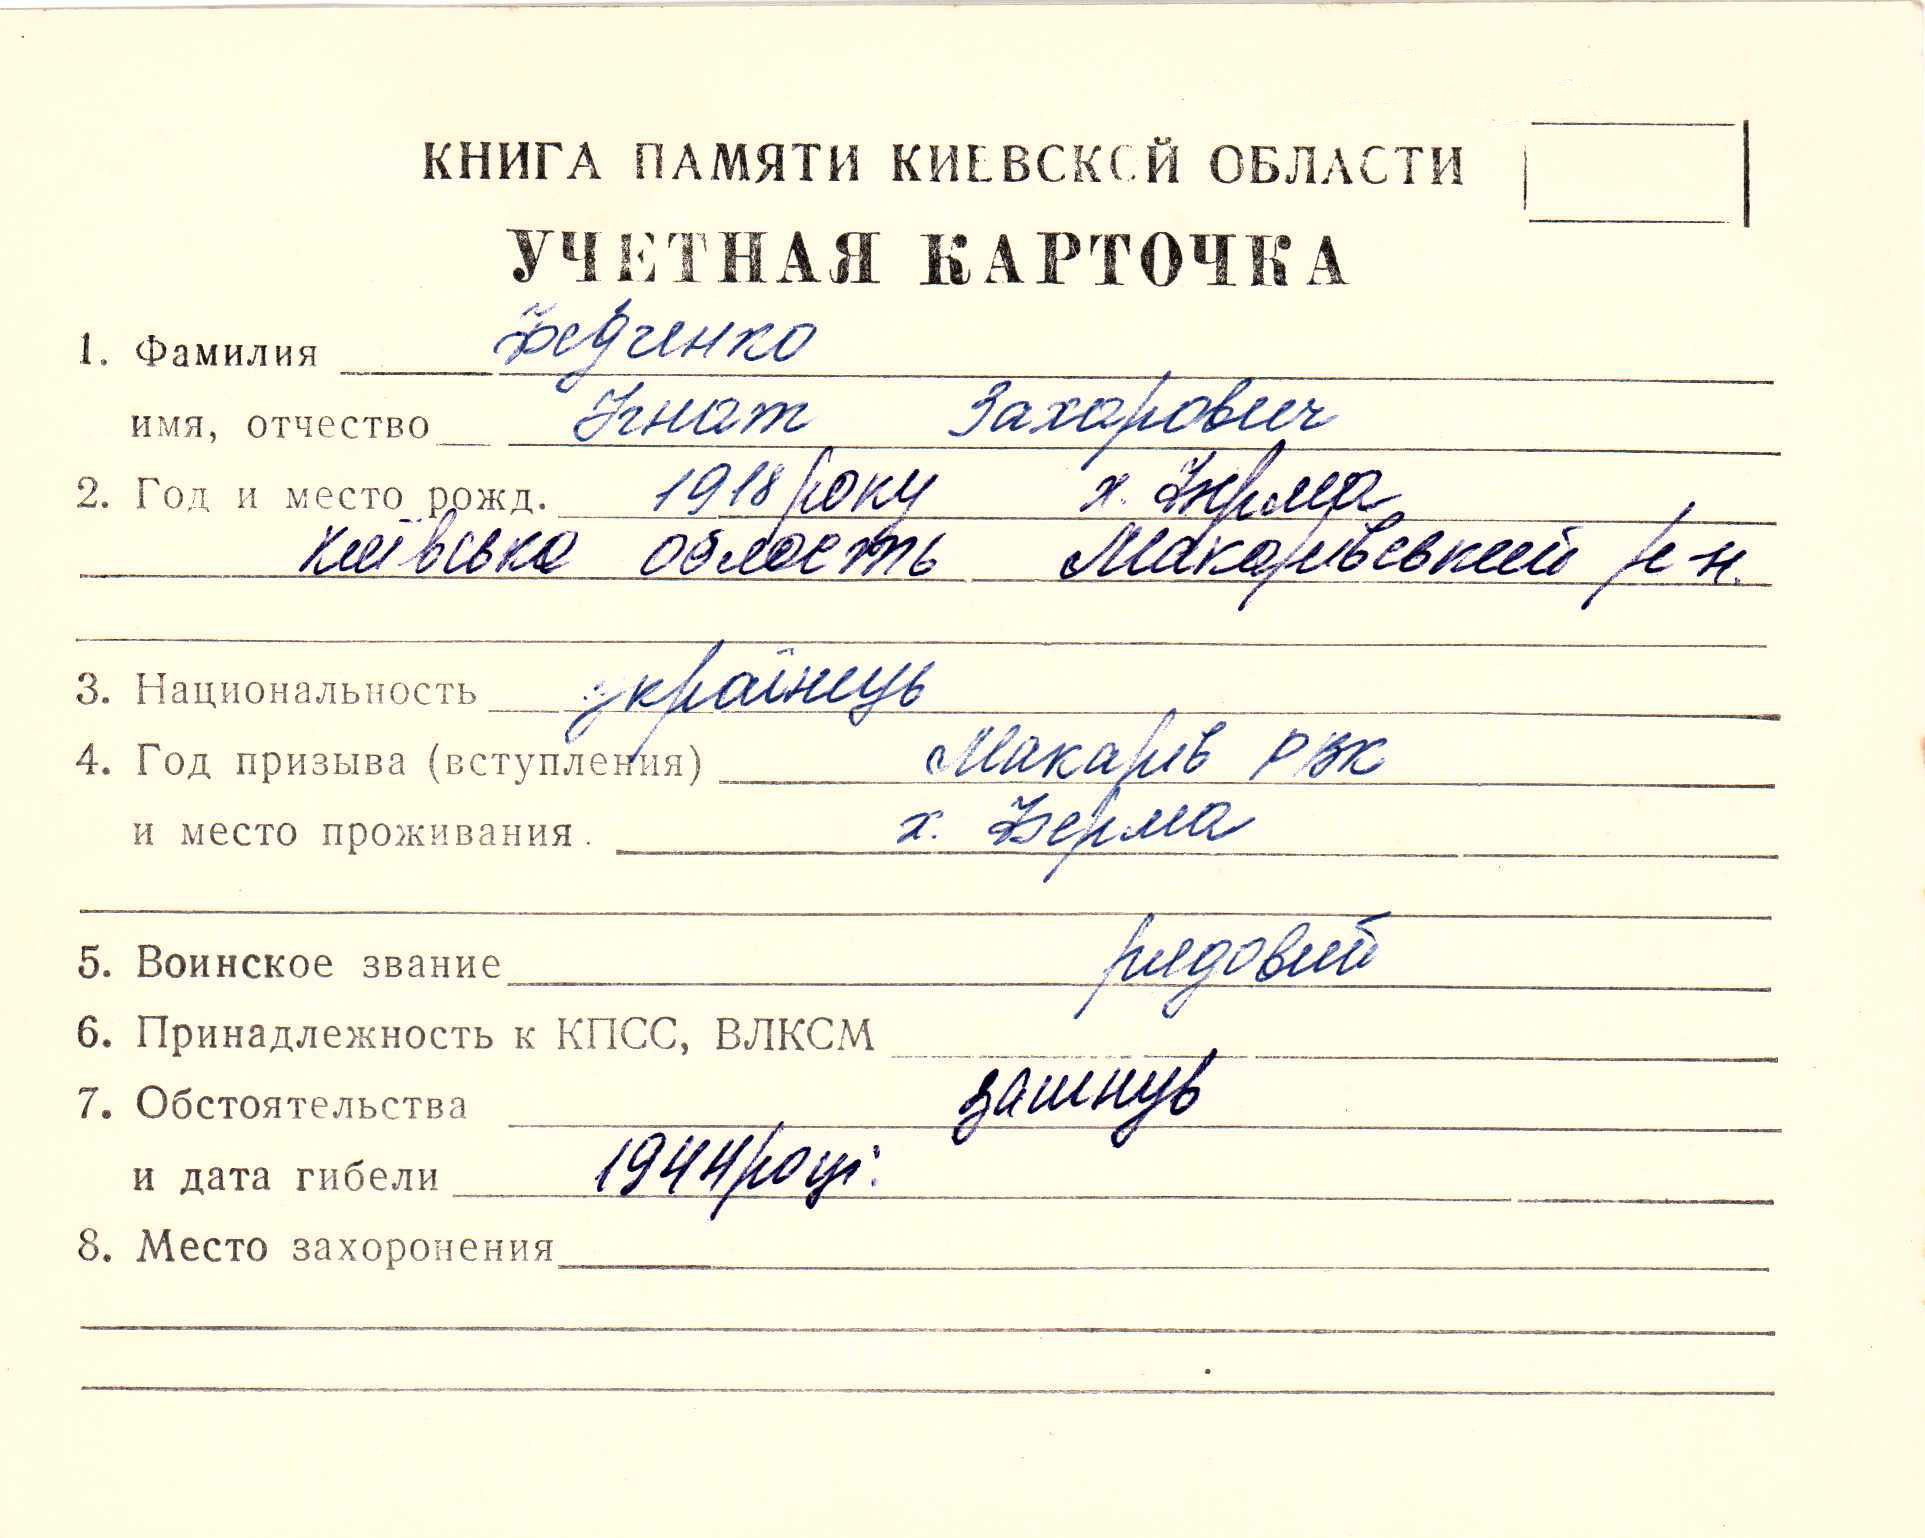 КНИГА ПАМЯТИ КИЕВСКОЙ ОБЛАСТИ
УЧЕТНАЯ КАРТОЧКА
1. Фамилия Федченко
имя, отчество Ігнат Захарович
2. Год и место рожд. 1918 року х. Ферма
Київська область Макарівський р-н.
3. Национальность українець
4. Год призыва (вступления) Макарів РВК
и место проживания. х. Ферма
5. Воинское звание рядовий
6. Принадлежность к КПСС, ВЛКСМ
7. Обстоятельства загинув
и дата гибели 1944 році.
8. Место захоронения